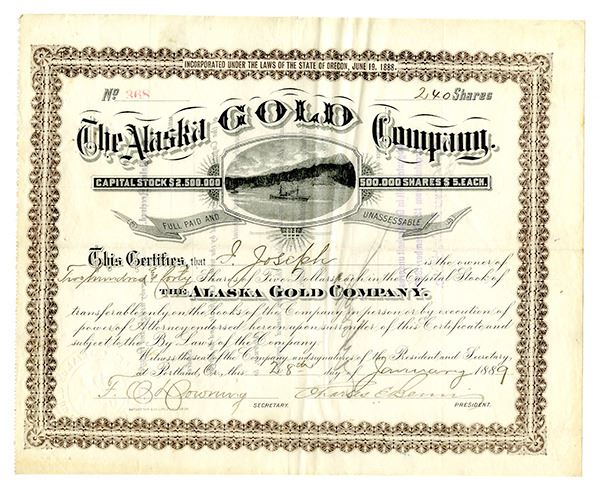 INCORPORATED UNDER THE LAWS OF THE STATE OF OREGON, JUNE 19, 1888.
No 268
240 Shares
The Alaska GOLD Company.
CAPITAL STOCK $2,500.000
500.000 SHARES $5. EACH.
FULL PAID AND UNASSESSABLE
This Certifies, that I. Joseph is the owner of
Two hundred & forty Shares of Five Dollars each in the Capital Stock of
THE ALASKA GOLD COMPANY.
transferable only on the books of the Company in person or by execution of
power of Attorney endorsed hereon upon surrender of this Certificate and
subject to the By Laws of the Company.
Witness the seal of the Company and signatures of the President and Secretary,
at Portland, Or., this 8th day of January 1889
SECRETARY.
Charles
PRESIDENT.